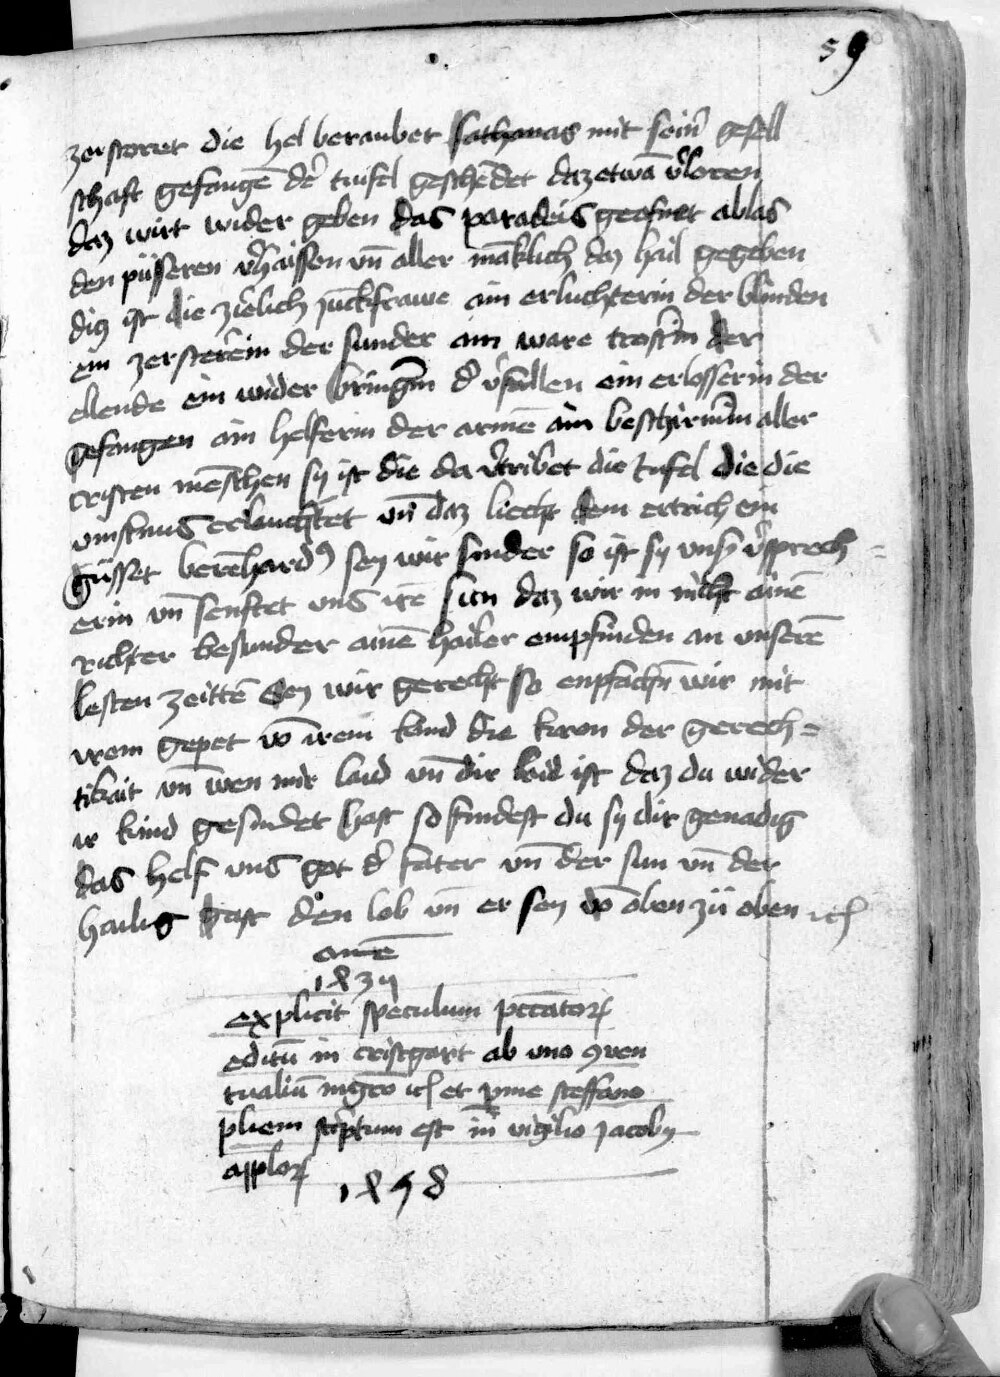 59
zerstorret die hel beraubet sathanas mit sein̄ gesell
schaft gefangē dē tiufel geschēdet daz etwā v̄loren
daz wirt wider geben das paradeis geofnet ablas
den püsseren v̄haissen vn̄ aller māklich daz hail gegeben
diz ist die zierlich junckfrawe ain erluchterin der blinden
ein zersterein der sunder ain ware trostin der
ellende ein wider bringerin d̄ v̄fallen ein erlosserin der
gefangen ain helferin der armē ain beschirmin aller
cristen mēschen sy ist die da v̄tribet die tufel die die
vinstnus erleuchtet vn̄ daz liecht dem ertrich ein
güsset bernhardꝰ sey wir sunder so ist sy vnsr̄ v̄sprech=
erin vn̄ senftet vns irē sun daz wir in nicht ainē
richter besunder ainē hailer empfinden an vnserē
lesten zeittē Sey wir gerecht so enpfachn̄ wir mit
irem gepet vō irem kind die kron der gerech=
tikait vn̄ wen mir laid vn̄ dir laid ist daz du wider
ir kind gesundet hast so findest du sy dir genadig
das helf vns got d̄ fater vn̄ der sun vn̄ der
hailig gaist den lob vn̄ er sey vō oben zü oben
amē
explicit speculum pccatoꝝ
editū in cristgart ab uno ꝯuen
tualiū et ꝑ me steffano
pliem scriptum est in vigilia jacoby
apploꝝ
1858